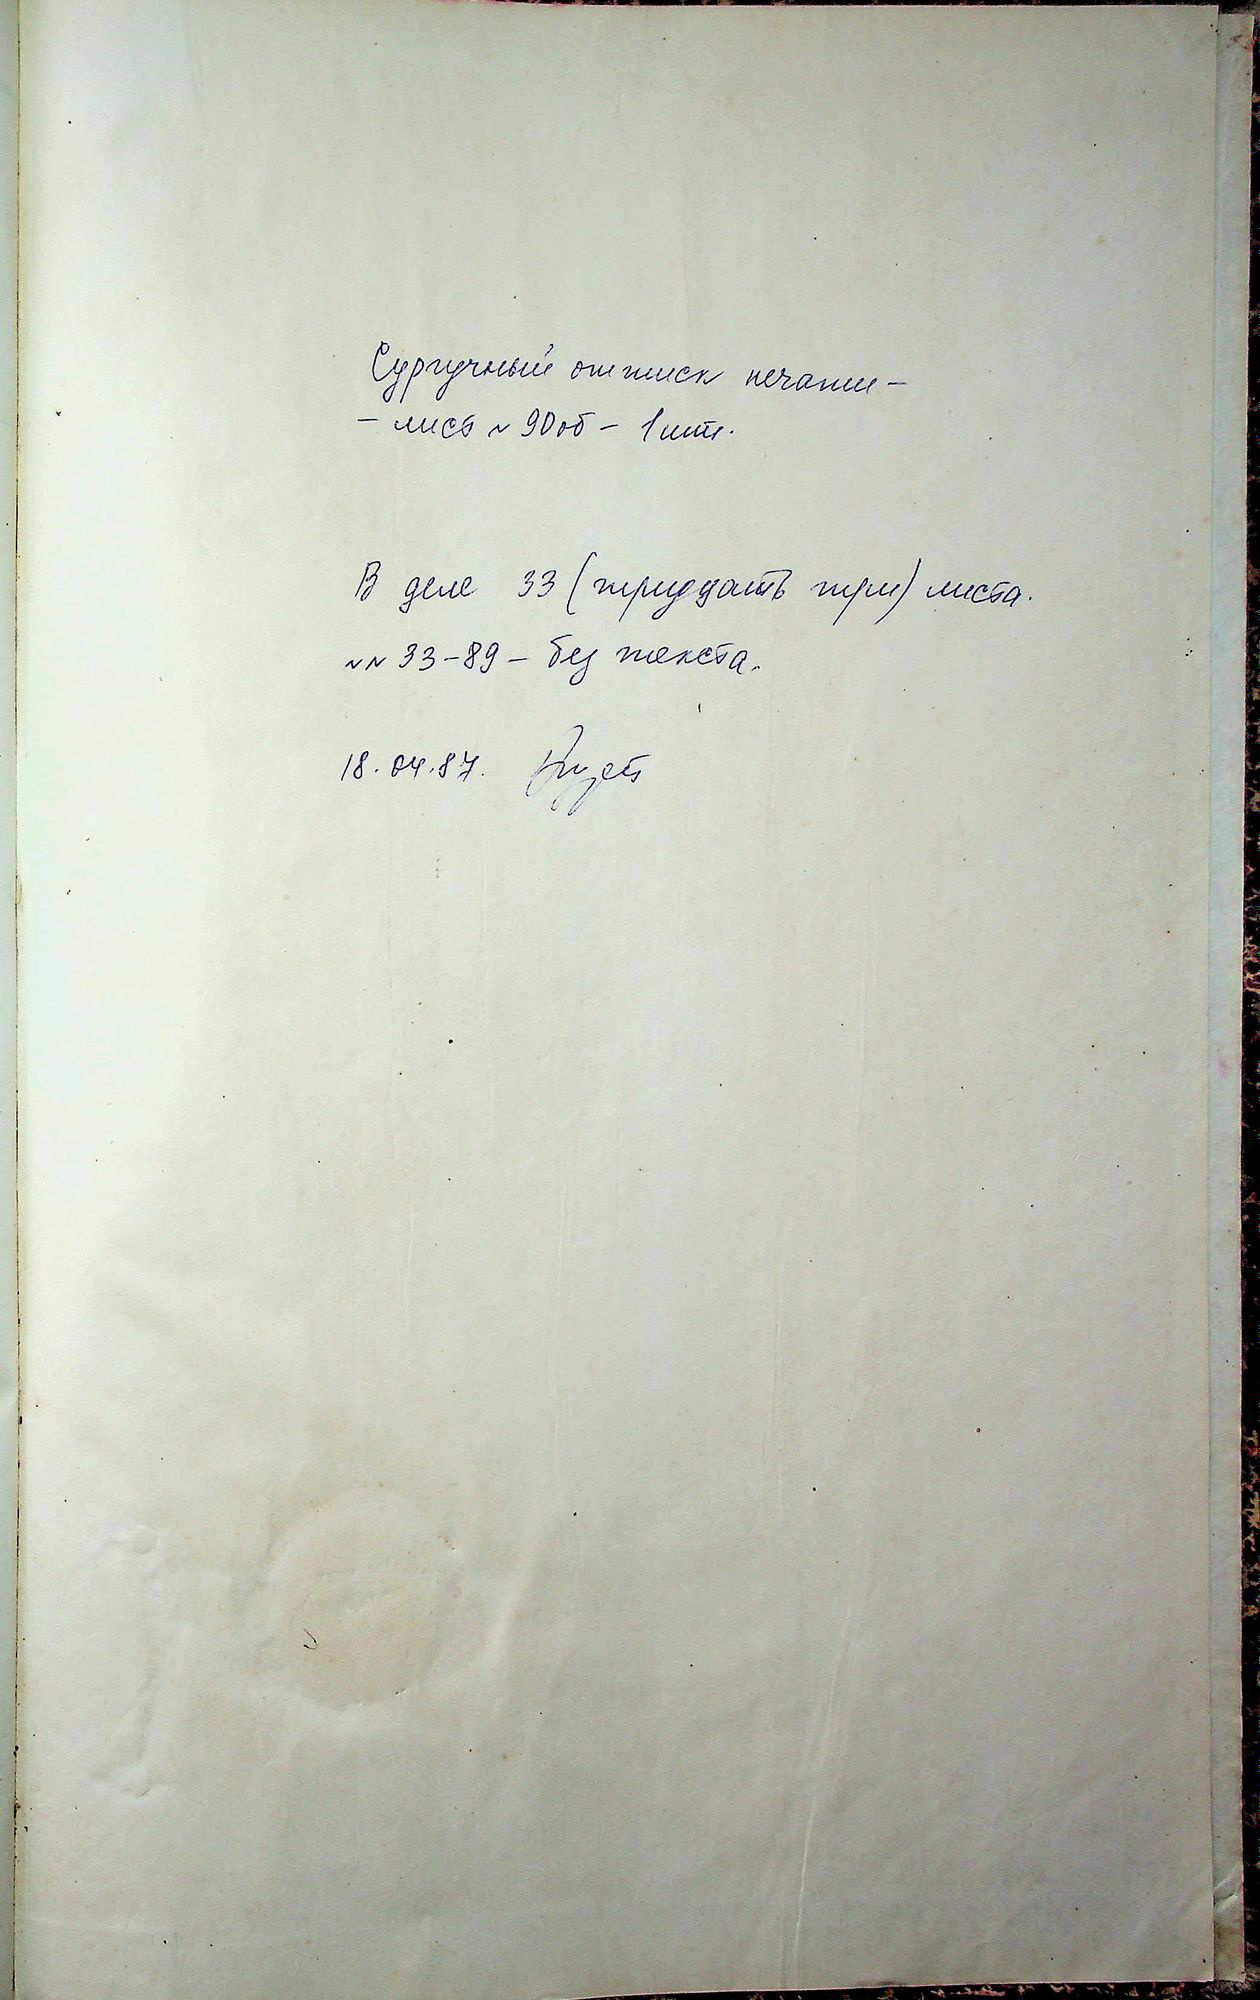 Сургучный оттиск печати -
- лист № 90 об - 1 шт.
В деле 33 (тридцать три) листа.
№№ 33-89 - без текста.
18.04.87.